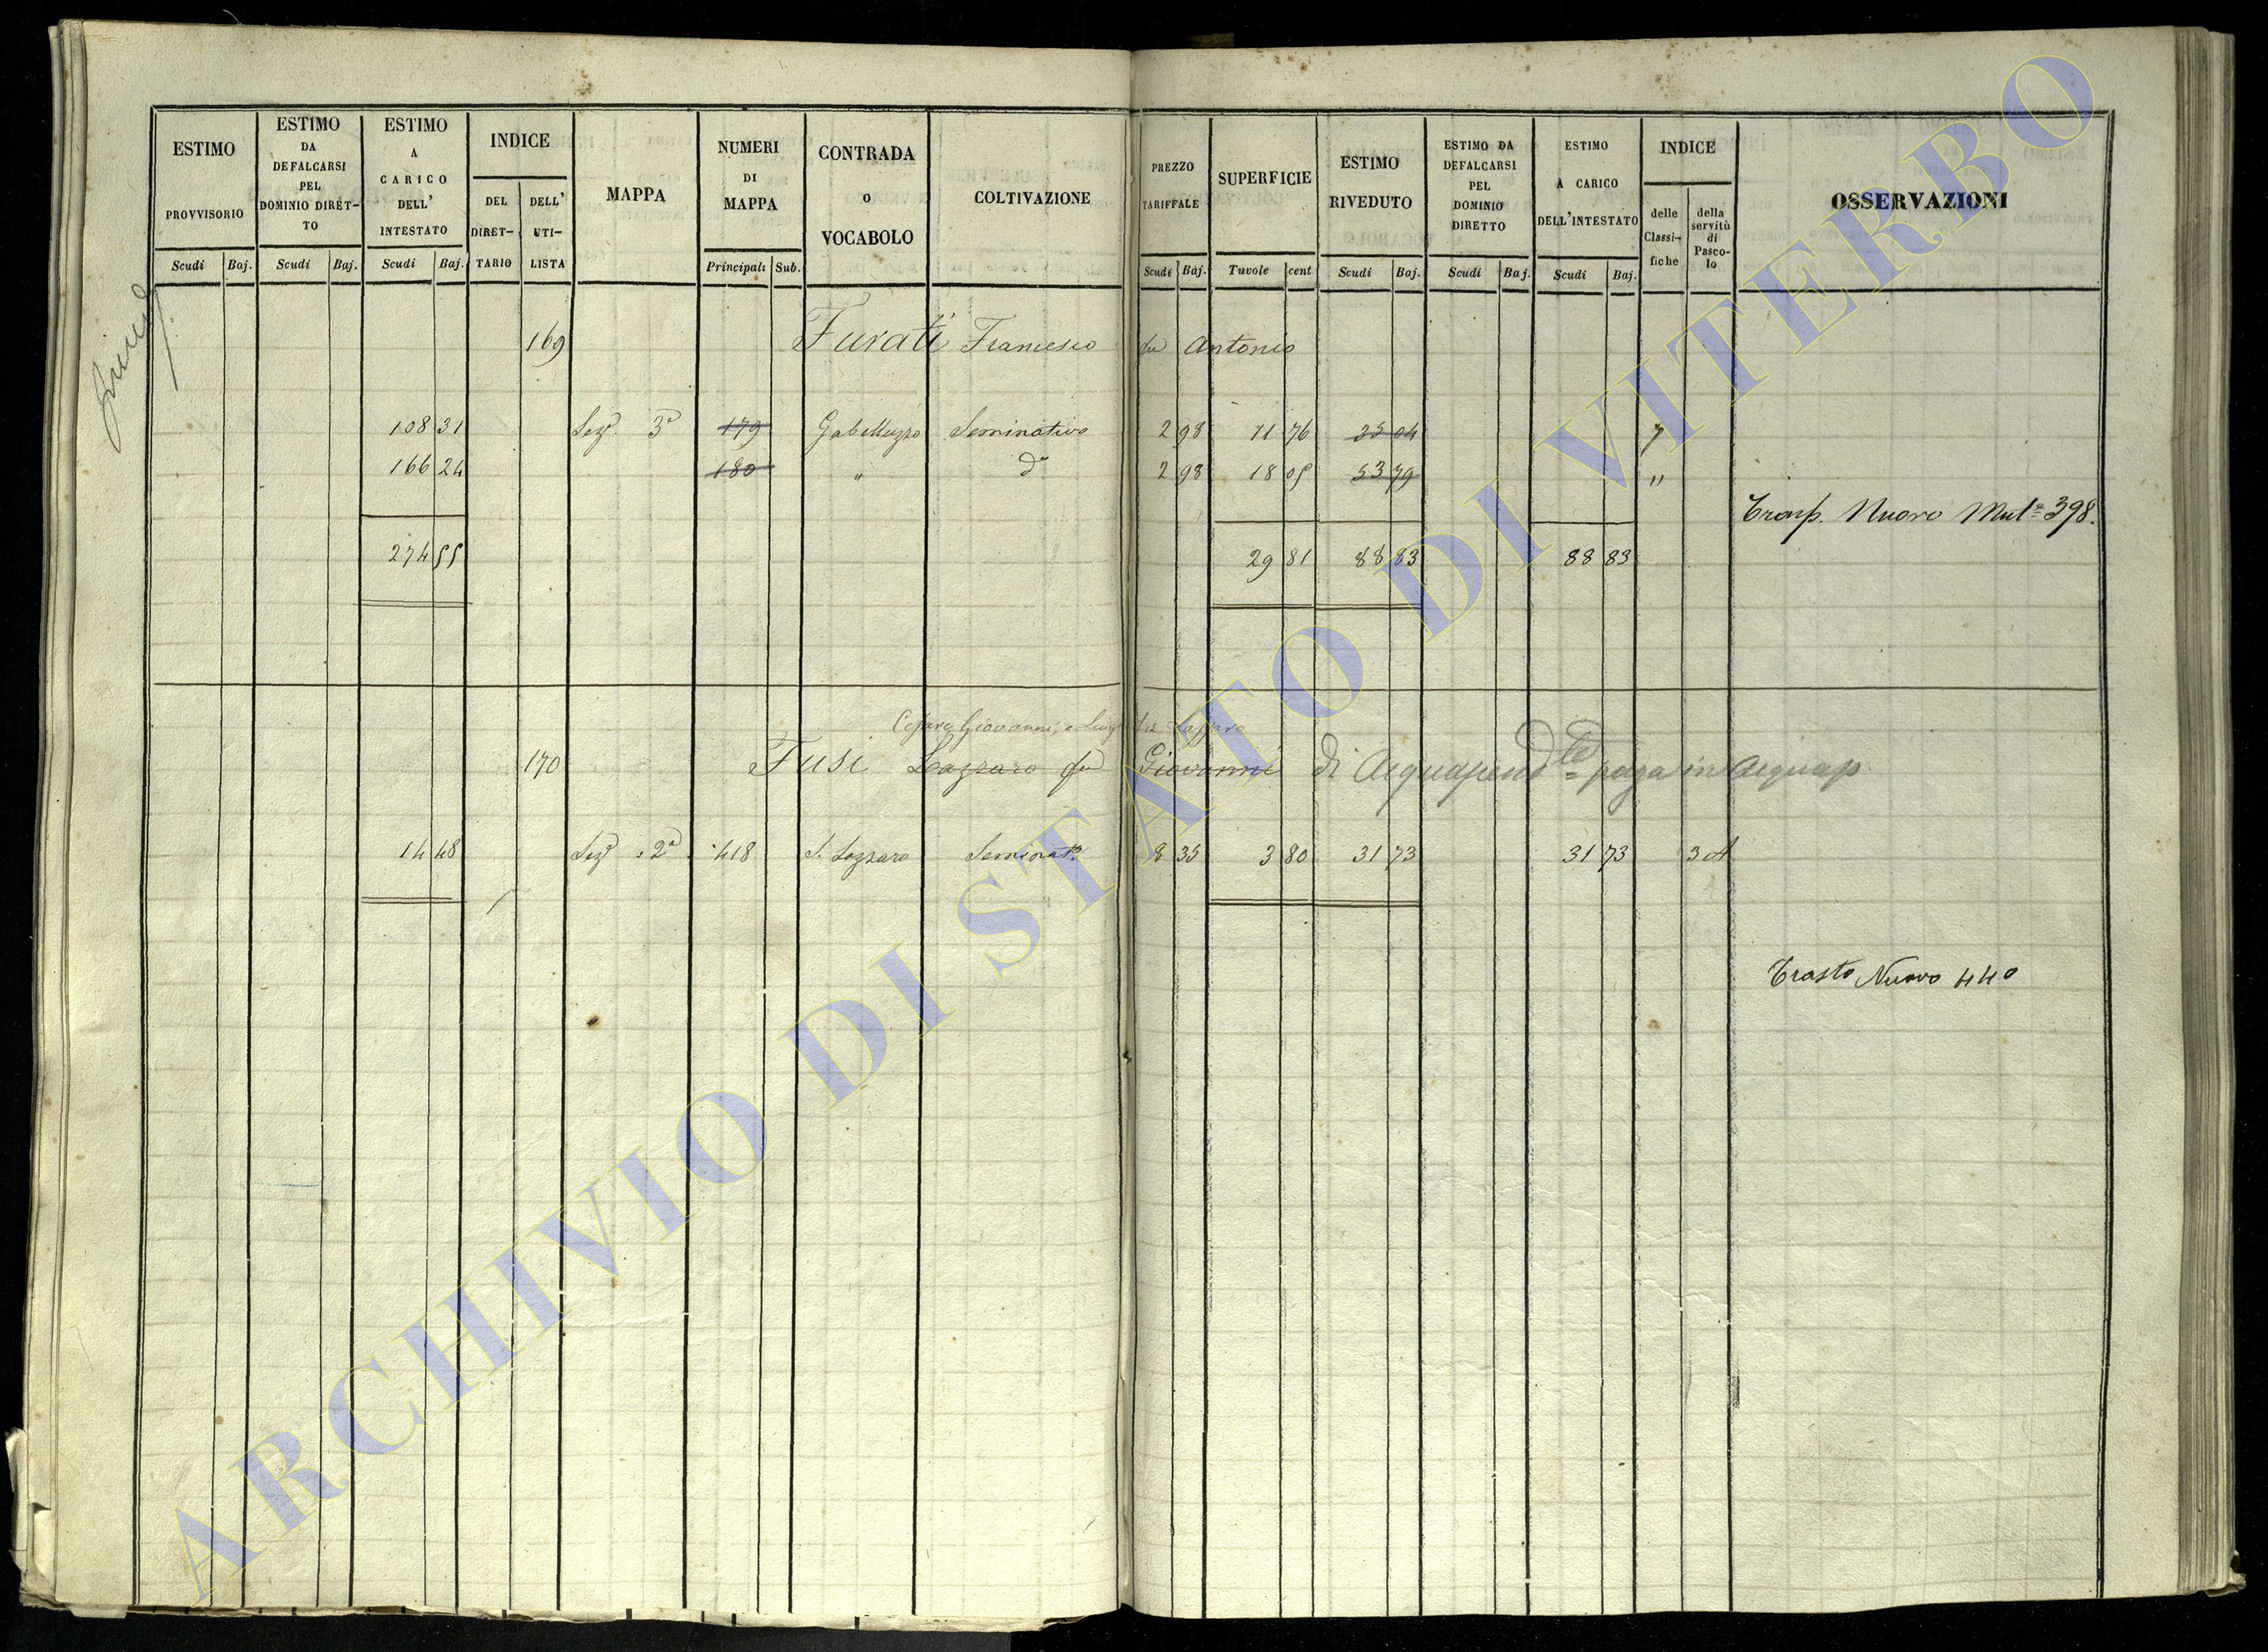 ESTIMO PROVVISORIO
Scudi Baj.
ESTIMO DA DEFALCARSI PEL DOMINIO DIRET-TO
Scudi Baj.
ESTIMO A CARICO DELL' INTESTATO
Scudi Baj.
INDICE
DEL DIRET-TARIO
DELL' UTI-LISTA
MAPPA
NUMERI DI MAPPA
Principali Sub.
CONTRADA o VOCABOLO
COLTIVAZIONE
PREZZO TARIFFALE
Scudi Baj.
SUPERFICIE
Tavole cent
ESTIMO RIVEDUTO
Scudi Baj.
ESTIMO DA DEFALCARSI PEL DOMINIO DIRETTO
Scudi Baj.
ESTIMO A CARICO DELL'INTESTATO
Scudi Baj.
INDICE
delle Classi-fiche
della servitù di Pasco-lo
OSSERVAZIONI
169 Furati Francesco fu Antonio
108 31 Sez. 3a 179 Gabelluzzo Seminativo 2 98 11 76 35 04 7
166 24 180 " do 2 98 18 05 53 79 "
Trasp. Nuovo Mut. 398.
274 55 29 81 88 83 88 83
Cesare, Giovanni, e Luigi Lazzaro
170 Fusi Lazzaro fu Giovanni di Acquapend.te paga in Acquap
14 48 Sez. 2a 418 S. Lazzaro Seminat. 8 35 3 80 31 73 31 73 3 A
Trasto Nuovo 440
ARCHIVIO DI STATO DI VITERBO